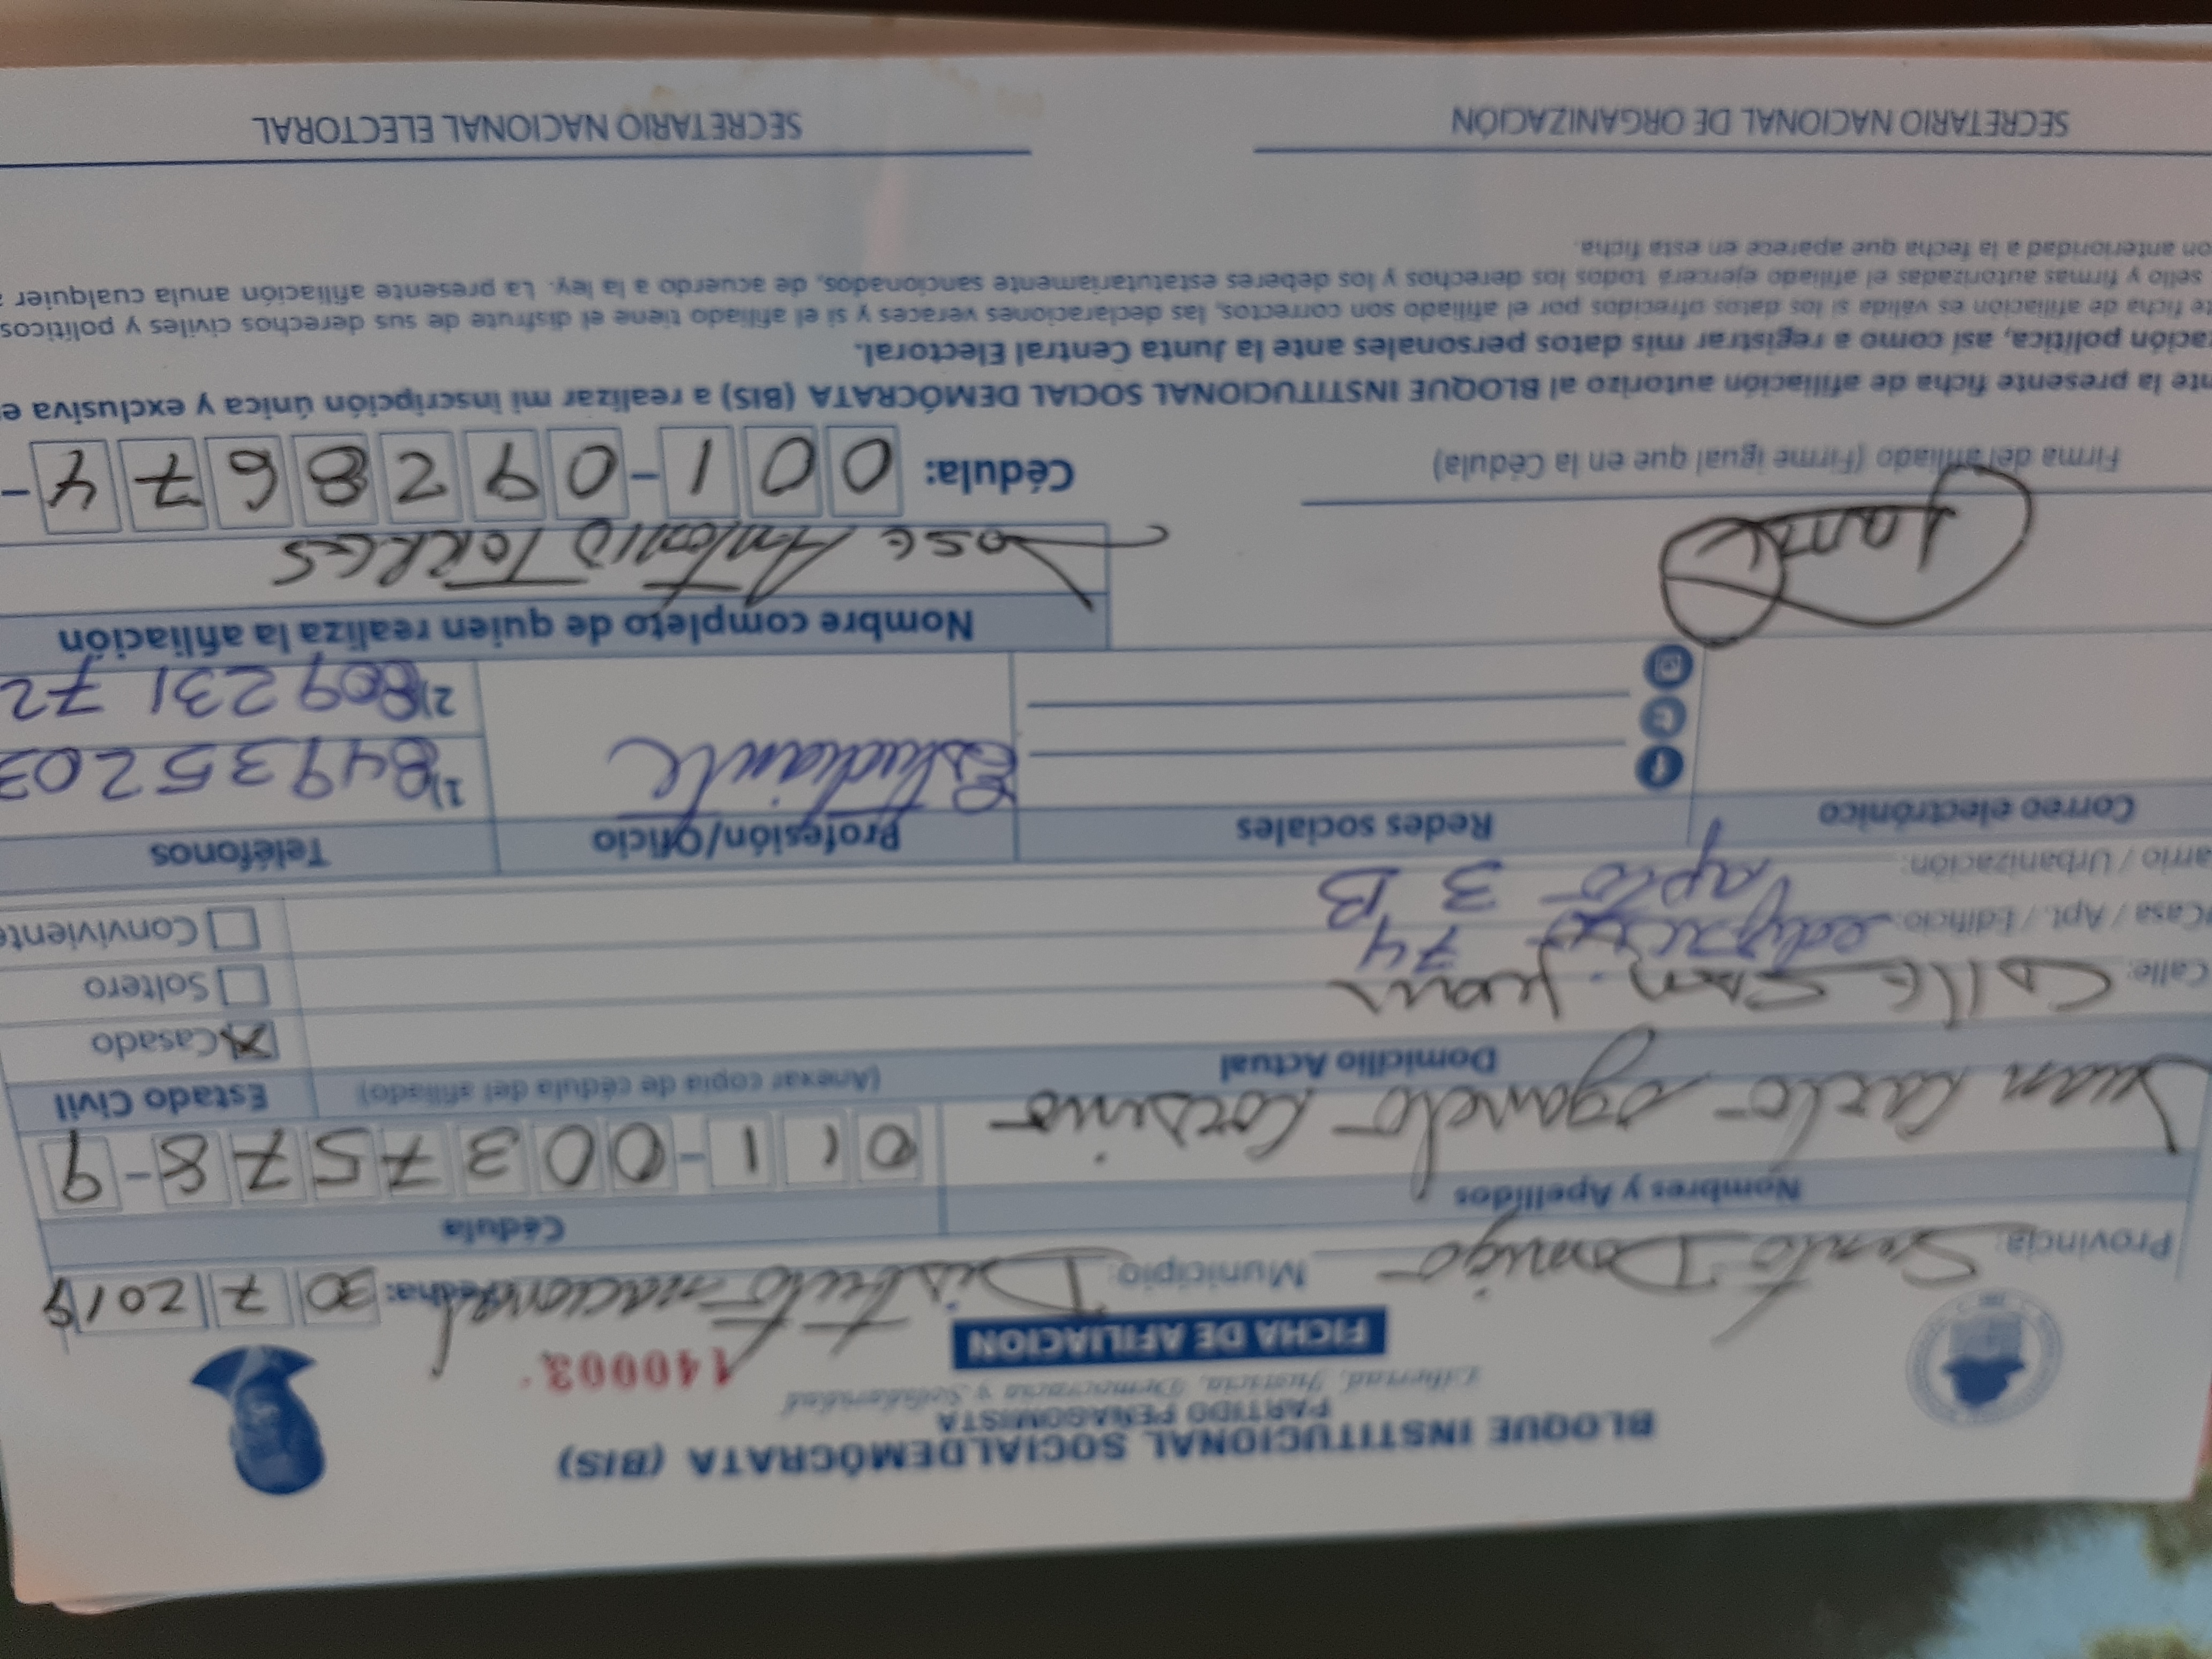 BLOQUE INSTITUCIONAL SOCIALDEMÓCRATA (BIS)
PARTIDO PEÑAGOMISTA
Libertad, Justicia, Democracia y Solidaridad
FICHA DE AFILIACION 140003
Provincia: Santo Domigo Municipio: Distrito nacional Fecha: 30 7 2019
Nombres y Apellidos Cédula
Juan Carlo 011-0037578-9
Domicilio Actual (Anexar copia de cédula del afiliado) Estado Civil
Calle: Calle San Juan Casado
Casa / Apt. / Edificio: 74 Soltero
arrio / Urbanización: apto 3 B Conviviente
Correo electrónico Redes sociales Profesión/Oficio Teléfonos
Estudiante 1) 849 35203
2) 809 231 72
Nombre completo de quien realiza la afiliación
Jose Antonio Torres
Firma del afiliado (Firme igual que en la Cédula) Cédula: 001-0928674-
nte la presente ficha de afiliación autorizo al BLOQUE INSTITUCIONAL SOCIAL DEMÓCRATA (BIS) a realizar mi inscripción única y exclusiva e
ación política, así como a registrar mis datos personales ante la Junta Central Electoral.
te ficha de afiliación es válida si los datos ofrecidos por el afiliado son correctos, las declaraciones veraces y si el afiliado tiene el disfrute de sus derechos civiles y políticos
sello y firmas autorizadas el afiliado ejercerá todos los derechos y los deberes estatutariamente sancionados, de acuerdo a la ley. La presente afiliación anula cualquier a
on anterioridad a la fecha que aparece en esta ficha.
SECRETARIO NACIONAL DE ORGANIZACIÓN SECRETARIO NACIONAL ELECTORAL